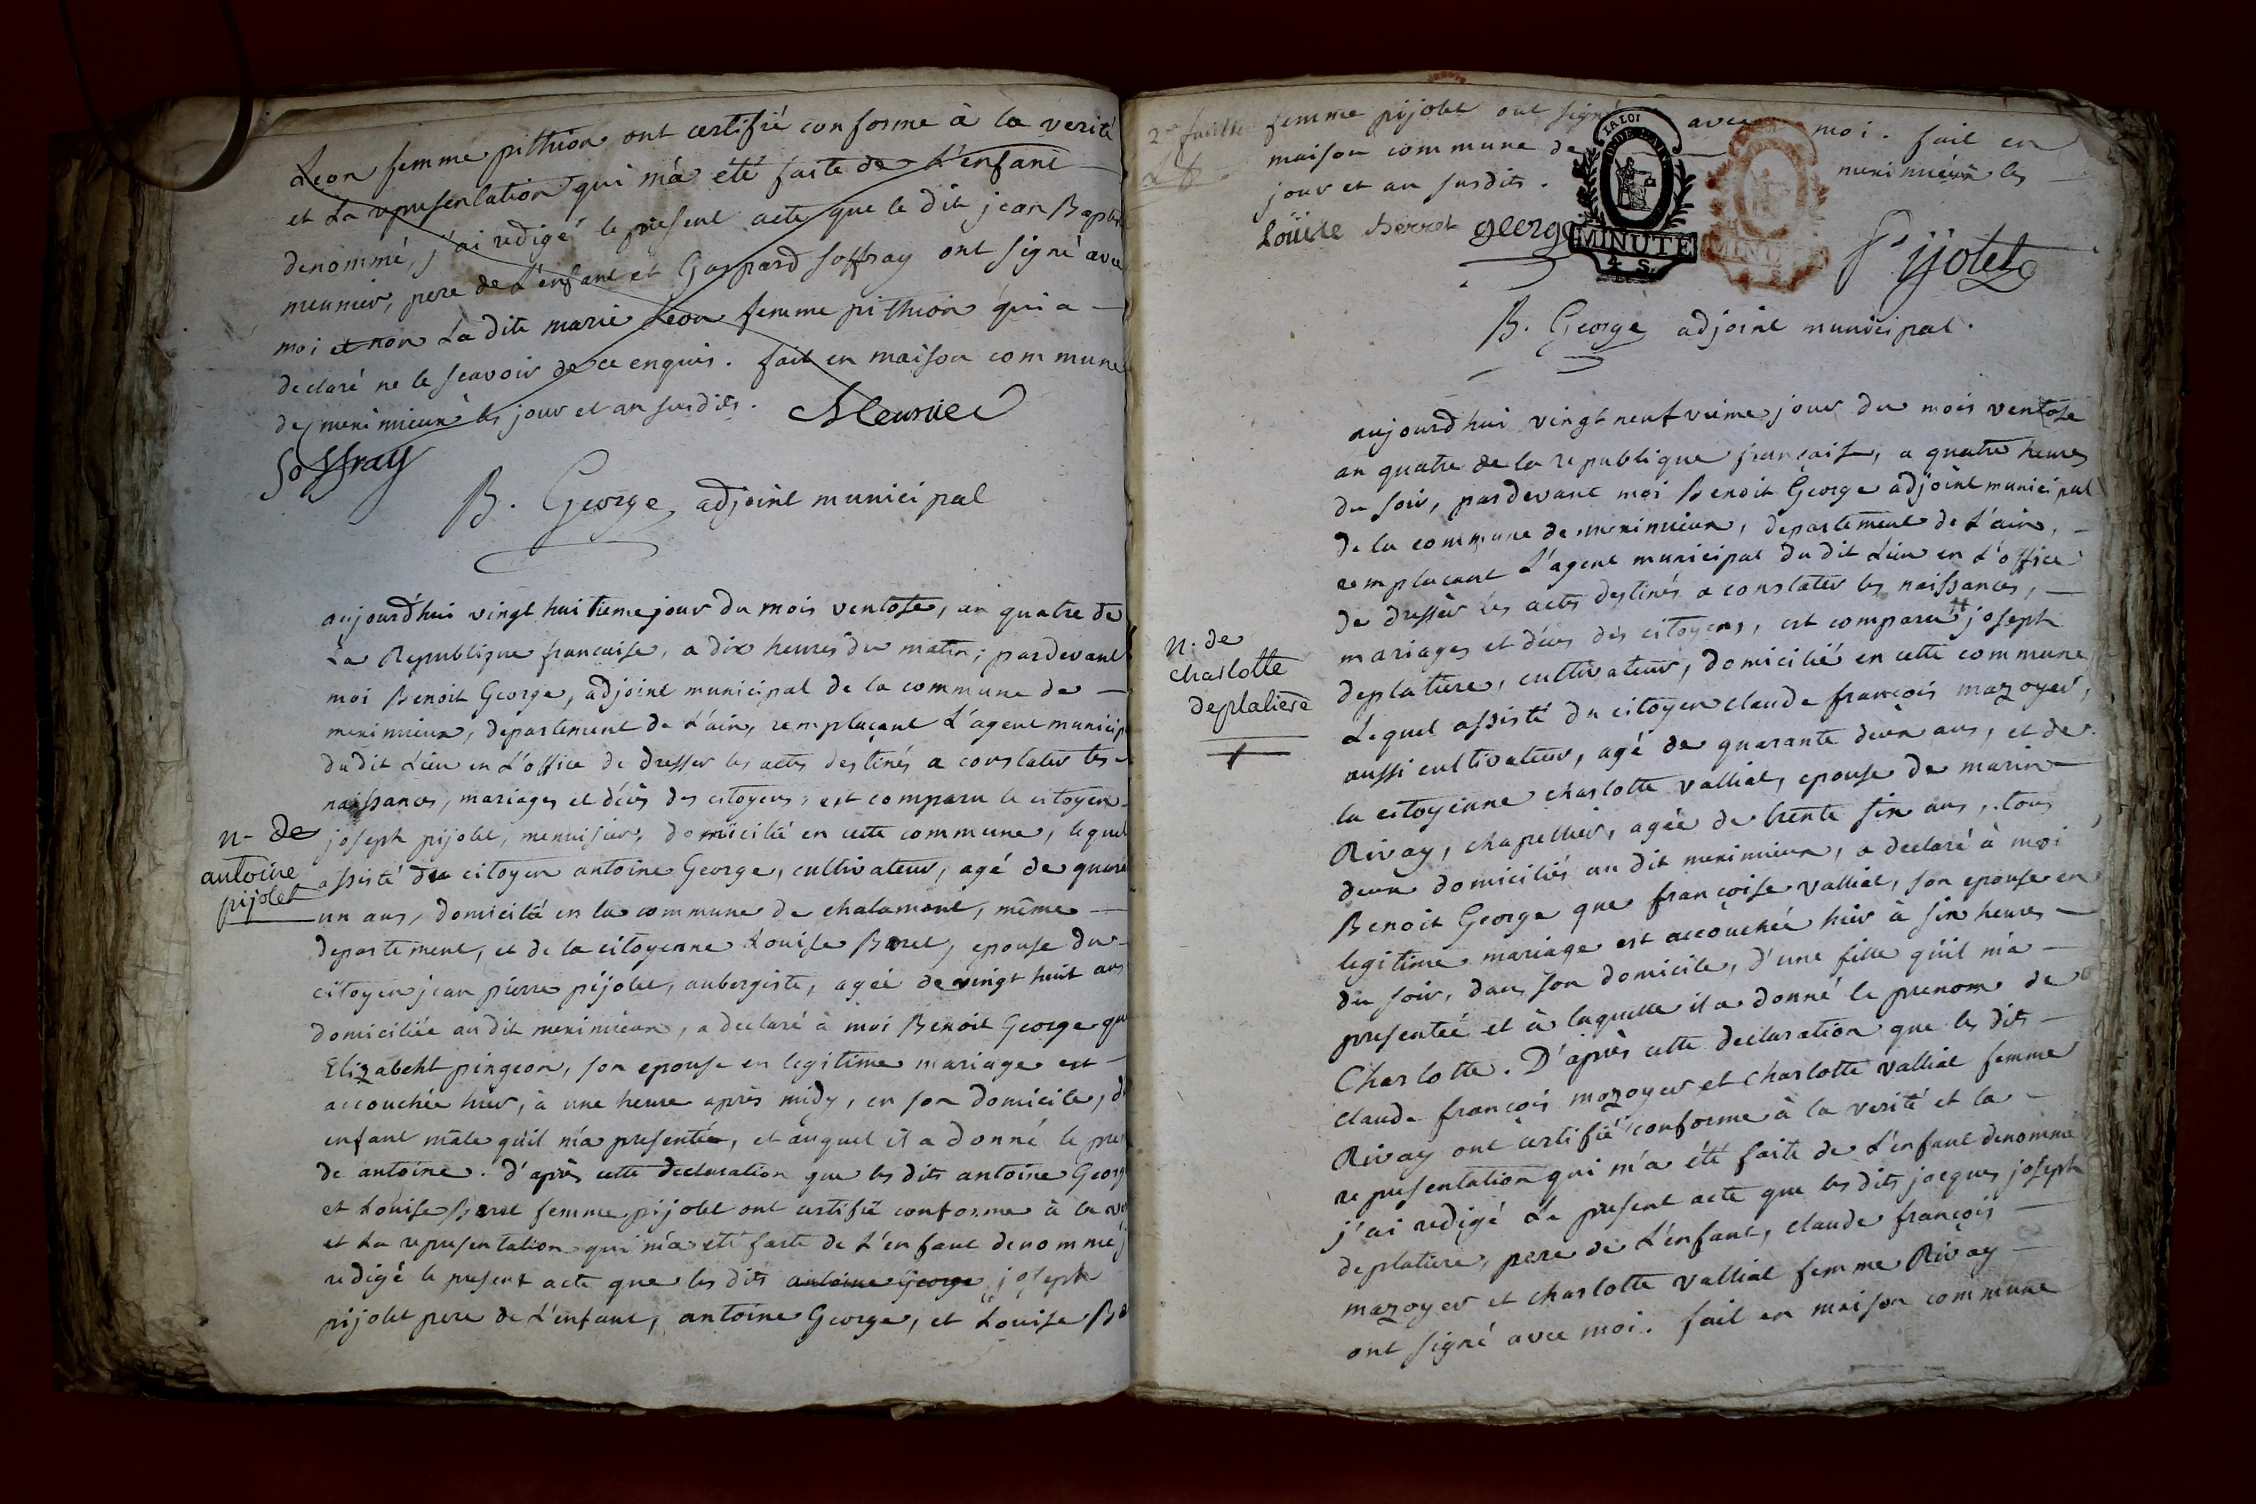 Leon femme pithion ont certifié conforme à la verité
et La representation qui m'a été faite de L'enfant
denommé, j'ai redigé le present acte que le dit jean Bapt
meunier, pere de L'enfant et Gaspard soffray ont signé avec
moi et non La dite marie Leon femme pithion qui a —
declaré ne le scavoir de ce enquis. fait en maison commune
de meximieux les jour et an susdits. Meunier
Soffray
B. George, adjoint municipal
aujourd'hui vingt huitieme jour du mois ventose, an quatre de
La Republique francaise, a dix heures du matin; pardevant
moi Benoit George, adjoint municipal de la commune de —
meximieux, departement de L'ain, remplaçant L'agent municip
du dit Lieu en L'office de dresser les actes destinés a constater les
naissances, mariages et décès des citoyens, est comparu le citoyen
n. de
antoine
pijolet
joseph pijolet, menuisier, domicilié en cette commune, lequel
assisté du citoyen antoine George, cultivateur, agé de quara
un ans, domicilié en la commune de chalamont, même —
departement, et de la citoyenne Louise Baret, epouse du
citoyen jean pierre pijolet, aubergiste, agée de vingt huit ans
domiciliée au dit meximieux, a declaré à moi Benoit George que
Elizabeht pingeon, son epouse en legitime mariage est —
accouchée hier, à une heure après midy, en son domicile, d'
enfant mâle qu'il m'a presentée, et auquel il a donné le pre
de antoine. d'après cette declaration que les dits antoine Georg
et Louise Baret femme pijolet ont certifié conforme à la ve
et La representation qui m'a été faite de L'enfant denommé j
redigé le present acte que les dits antoine George, joseph
pijolet pere de L'enfant, antoine George, et Louise Ba
2e feuillet
femme pijolet ont signé avec moi. fait en
maison commune de meximieux les —
jour et an susdits.
LA LOI
MINUTE
4 S.
MINUTE
Loüise Berret george Pijolet
B. George adjoint municipal.
aujourd'hui vingt neufvieme jour du mois ventose
an quatre de la republique française, a quatre heures
du soir, pardevant moi Benoit George adjoint municipal
de la commune de meximieux, departement de L'ain, —
remplacant L'agent municipal du dit Lieu en L'office
de dresser les actes destinés a constater les naissances, —
mariages et décès des citoyens, est comparu joseph
n. de
charlotte
deplatière
deplatiere, cultivateur, domicilié en cette commune
Lequel assisté du citoyen claude françois mazoyer,
aussi cultivateur, agé de quarante deux ans, et de
la citoyenne charlotte valliat, epouse de marin
Rivay, chapellier, agée de trente six ans, tous
deux domiciliés au dit meximieux, a declaré à moi
Benoit George que françoise valliat, son epouse en
legitime mariage est accouchée hier à six heures —
du soir, dans son domicile, d'une fille qu'il m'a —
presentée et à laquelle il a donné le prenom de
Charlotte. D'après cette declaration que les dits —
claude françois mazoyer et charlotte valliat femme
Rivay ont certifié conforme à la verité et la —
representation qui m'a été faite de L'enfant denommé
j'ai redigé Le present acte que les dits jacques joseph
deplatiere, pere de L'enfant, claude françois —
mazoyer et charlotte valliat femme Rivay —
ont signé avec moi. fait en maison commune